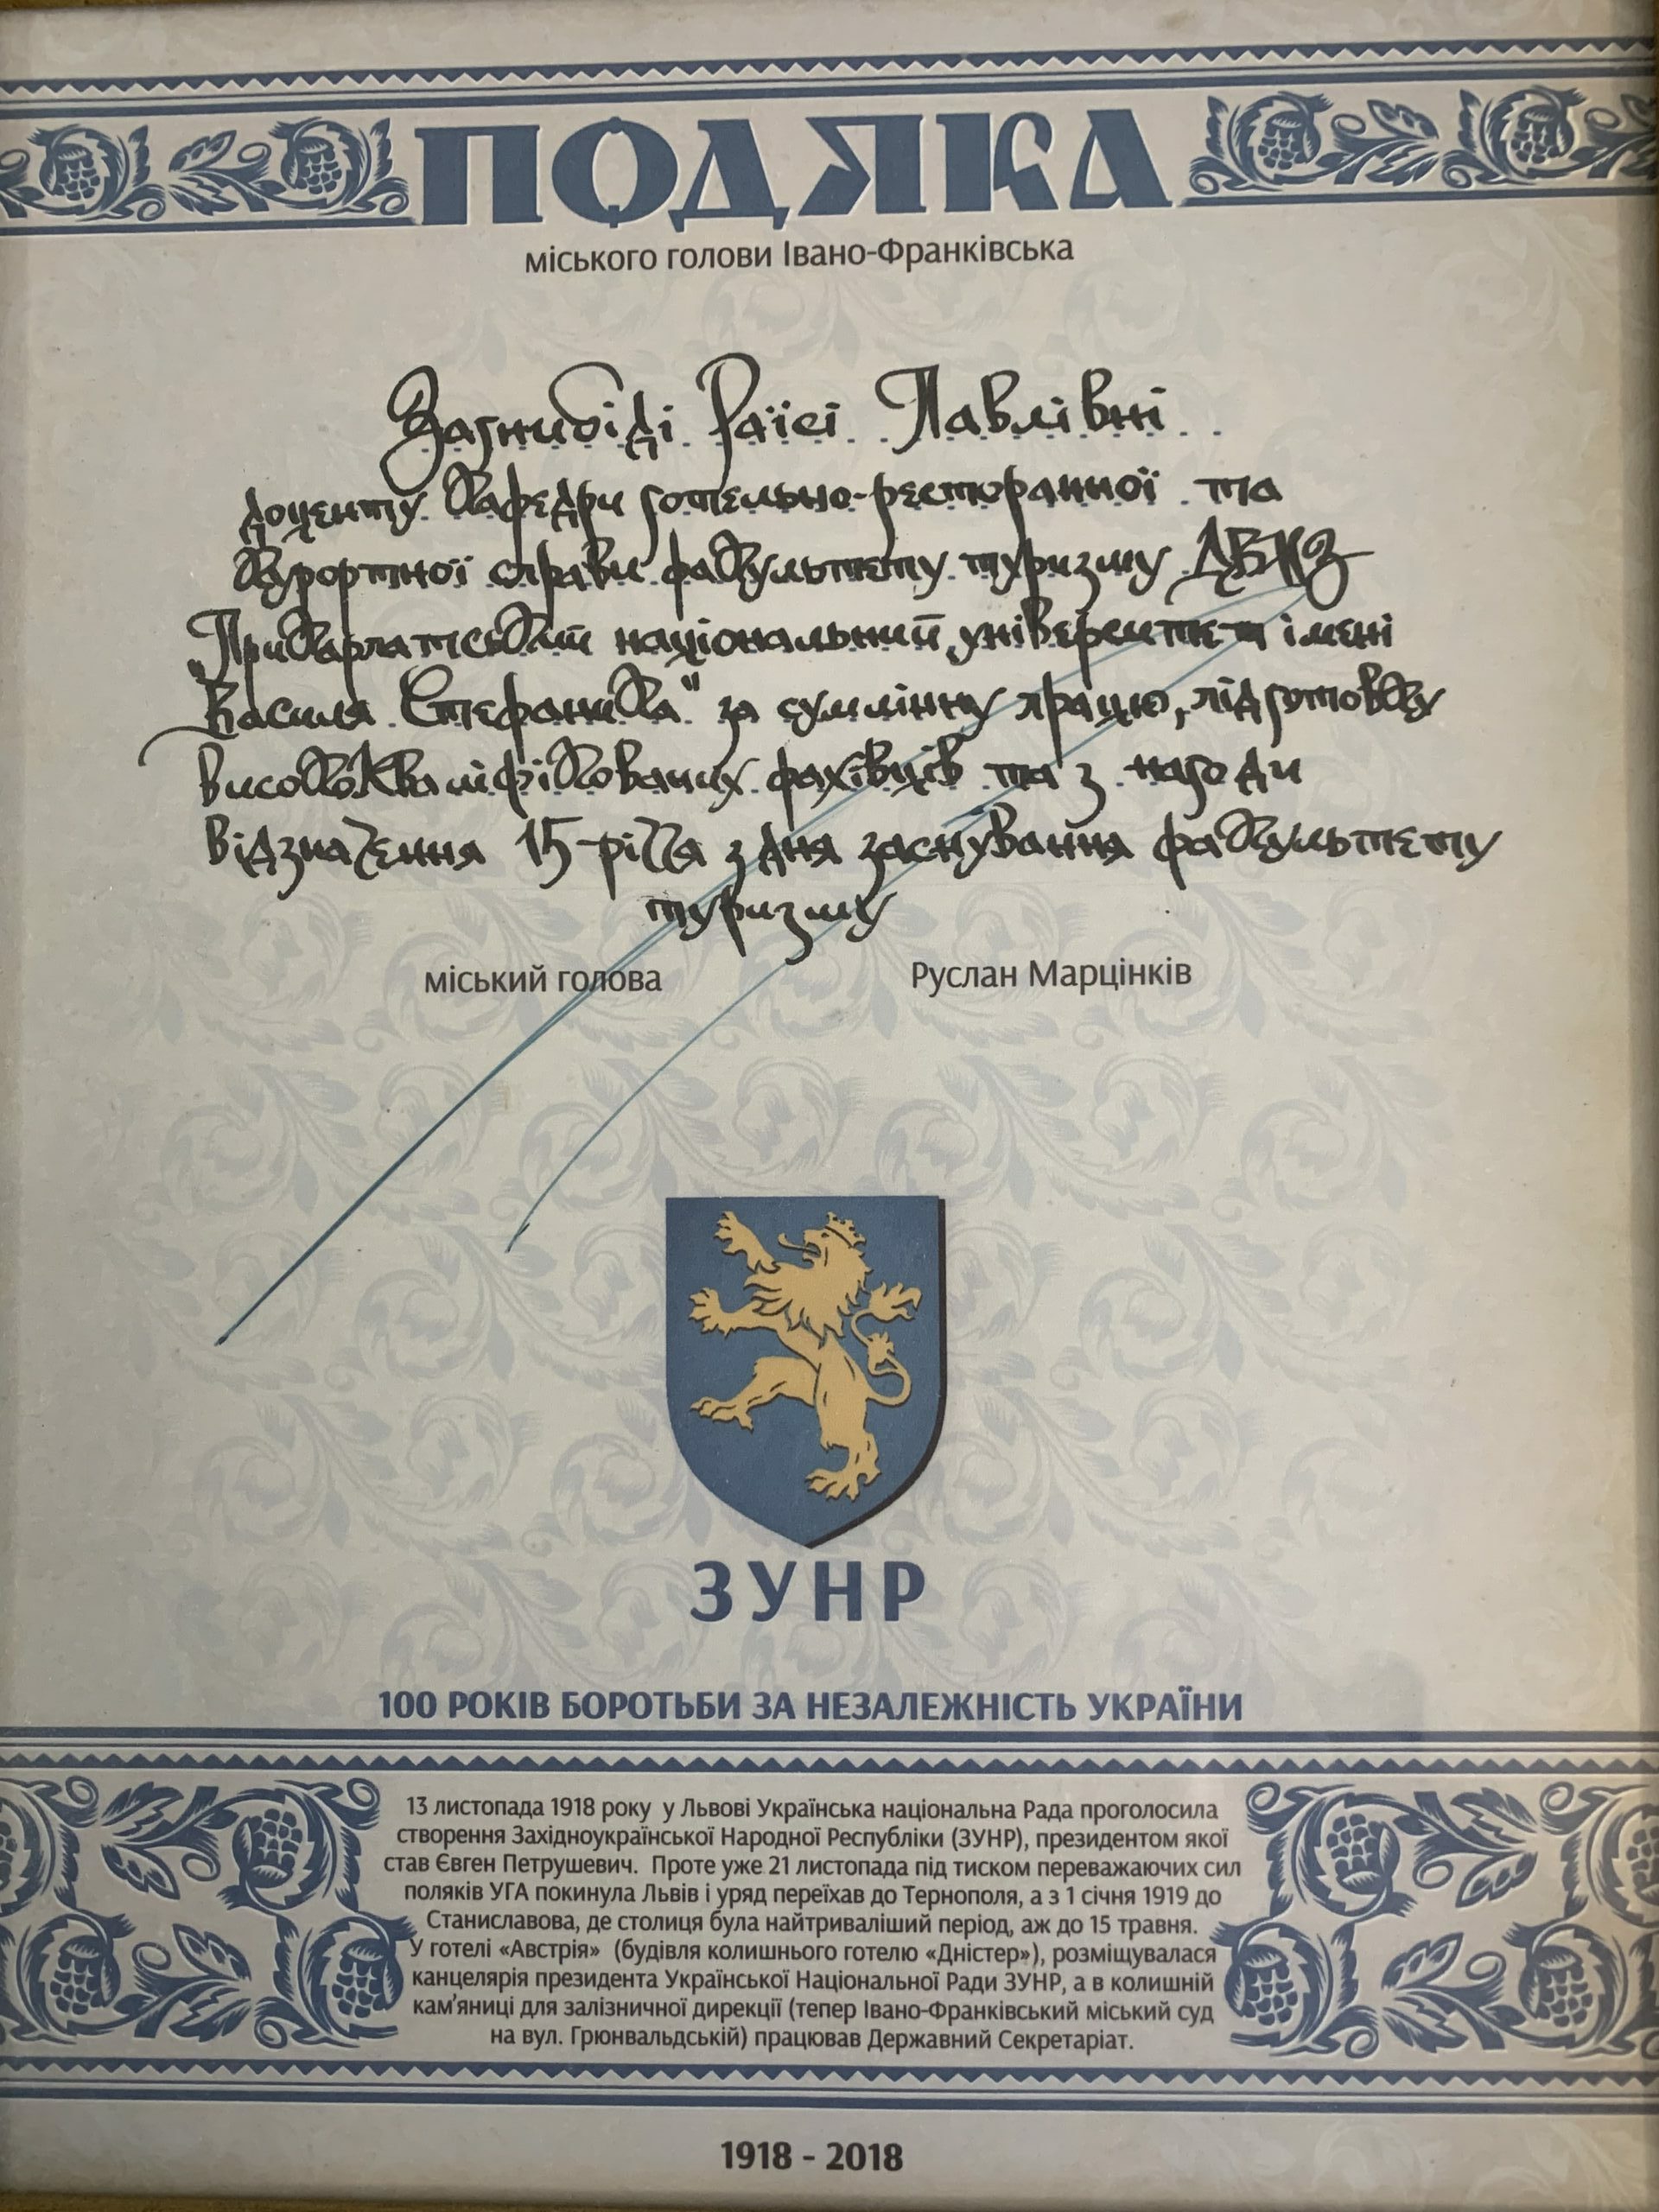 ПОДЯКА
міського голови Івано-Франківська
Загнибіді Раїсі Павлівні
доценту кафедри готельно-ресторанної та
курортної справи факультету туризму ДВНЗ
"Прикарпатський національний університет імені
Василя Стефаника" за сумлінну працю, підготовку
висококваліфікованих фахівців та з нагоди
відзначення 15-річчя з дня заснування факультету
туризму
міський голова Руслан Марцінків
ЗУНР
100 РОКІВ БОРОТЬБИ ЗА НЕЗАЛЕЖНІСТЬ УКРАЇНИ
13 листопада 1918 року у Львові Українська національна Рада проголосила
створення Західноукраїнської Народної Республіки (ЗУНР), президентом якої
став Євген Петрушевич. Проте уже 21 листопада під тиском переважаючих сил
поляків УГА покинула Львів і уряд переїхав до Тернополя, а з 1 січня 1919 до
Станиславова, де столиця була найтриваліший період, аж до 15 травня.
У готелі «Австрія» (будівля колишнього готелю «Дністер»), розміщувалася
канцелярія президента Української Національної Ради ЗУНР, а в колишній
кам'яниці для залізничної дирекції (тепер Івано-Франківський міський суд
на вул. Грюнвальдській) працював Державний Секретаріат.
1918 - 2018